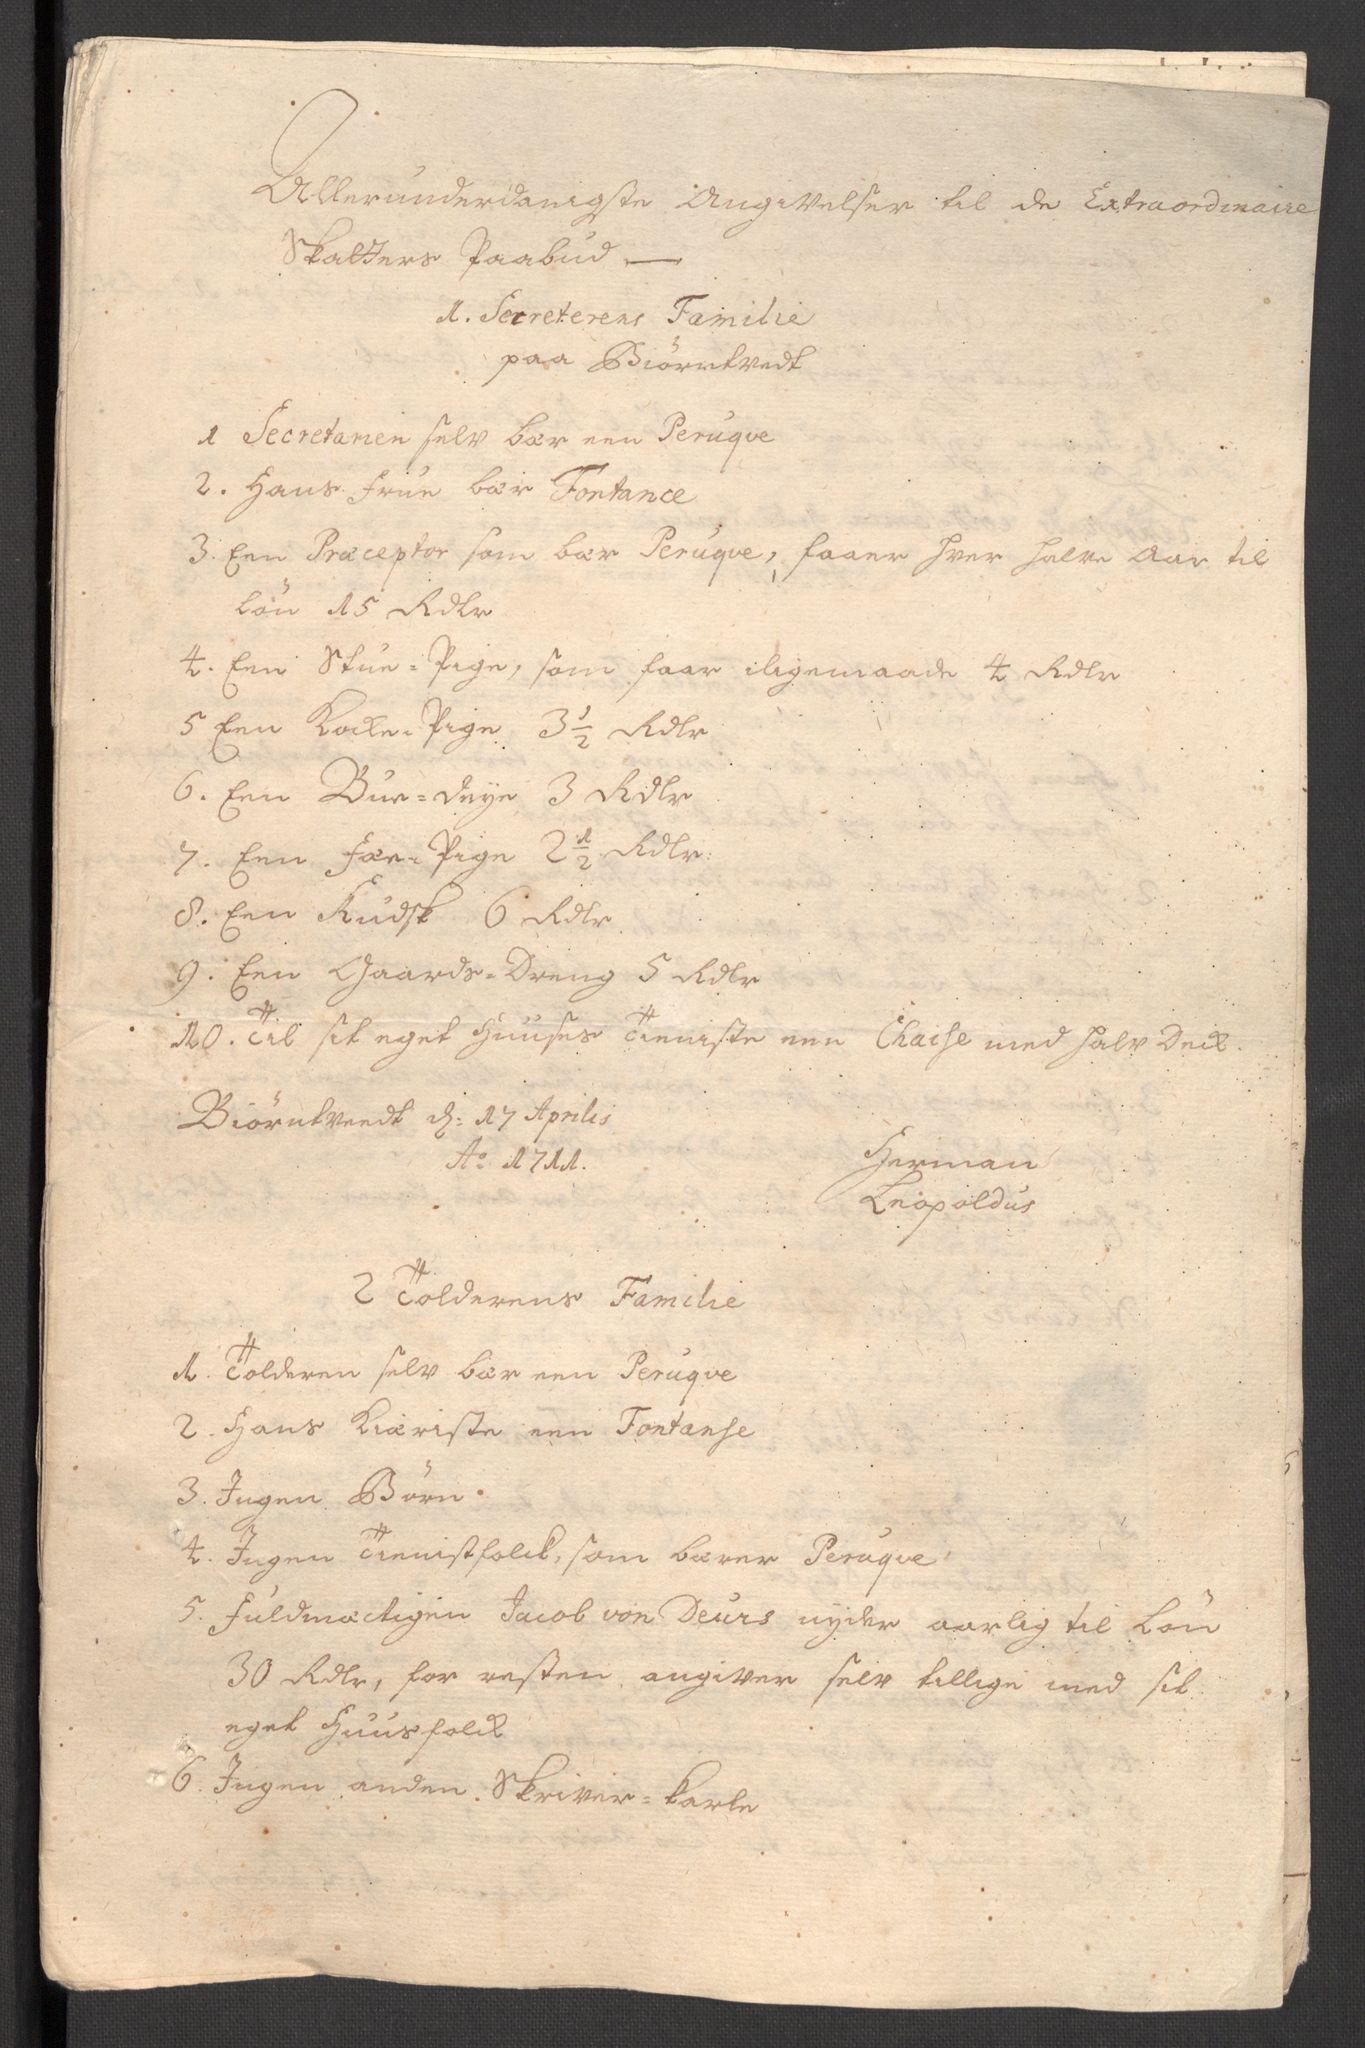 Allerunderdanigste Angivelser til de Extraordinaire
Skatters Paabud —
1. Secreterens Familie
paa Biörntvedt
1 Secretarien selv bær een Peruqve
2. Hans Frue bær Fontance
3. Een Præceptor som bær Peruqve, faaer hver halve Aar til
Lön 15 Rdlr
4. Een Stue-Pige, som faar iligemaade 4 Rdlr
5 Een Kocke-Pige 3 1/2 Rdlr
6. Een Bue-Deye 3 Rdlr
7. Een Fæe-Pige 2 1/2 Rdlr:
8. Een Kudsk 6 Rdlr
9. Een Gaards-Dreng 5 Rdlr
10. Til sit eget Huuses Tieniste een Chaise med halv Deck.
Biörntveedt d: 17 Aprilis
Ao 1711.
Herman
Leopoldus
2 Tolderens Familie
1. Tolderen selv bær een Peruqve
2. Hans Kiæriste een Fontanse
3. Ingen Börn
4. Ingen Tienistfolck, som bærer Peruqve
5. Fuldmæctigen Jacob von Deurs nyder aarlig til Lön
30 Rdlr, for resten angiver selv tillige med sit
eget Huusfolck
6. Ingen anden Skriver-karle